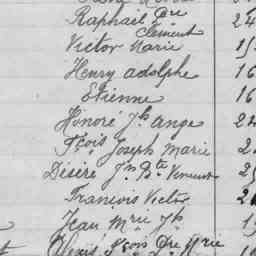 Raphaël Pre 24
Clément
Victor Marie 15
Henry adolphe 16
Etienne 16
Honoré Jh ange 24
Fçois Joseph Marie 2
Désiré Jn Bte Vincent 25
François Victor 2
Jean Mrie Jh 1
Fçois Pre Mrie